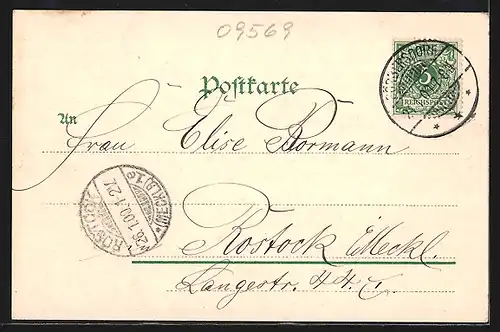 09569
Postkarte
5
REICHSPOST
An
Frau Elise Bormann
ROSTOCK
26.1.00.1-2N.
(MECKLB) 1 e
in
Rostock i/Meckl.
Langestr. 44 I.